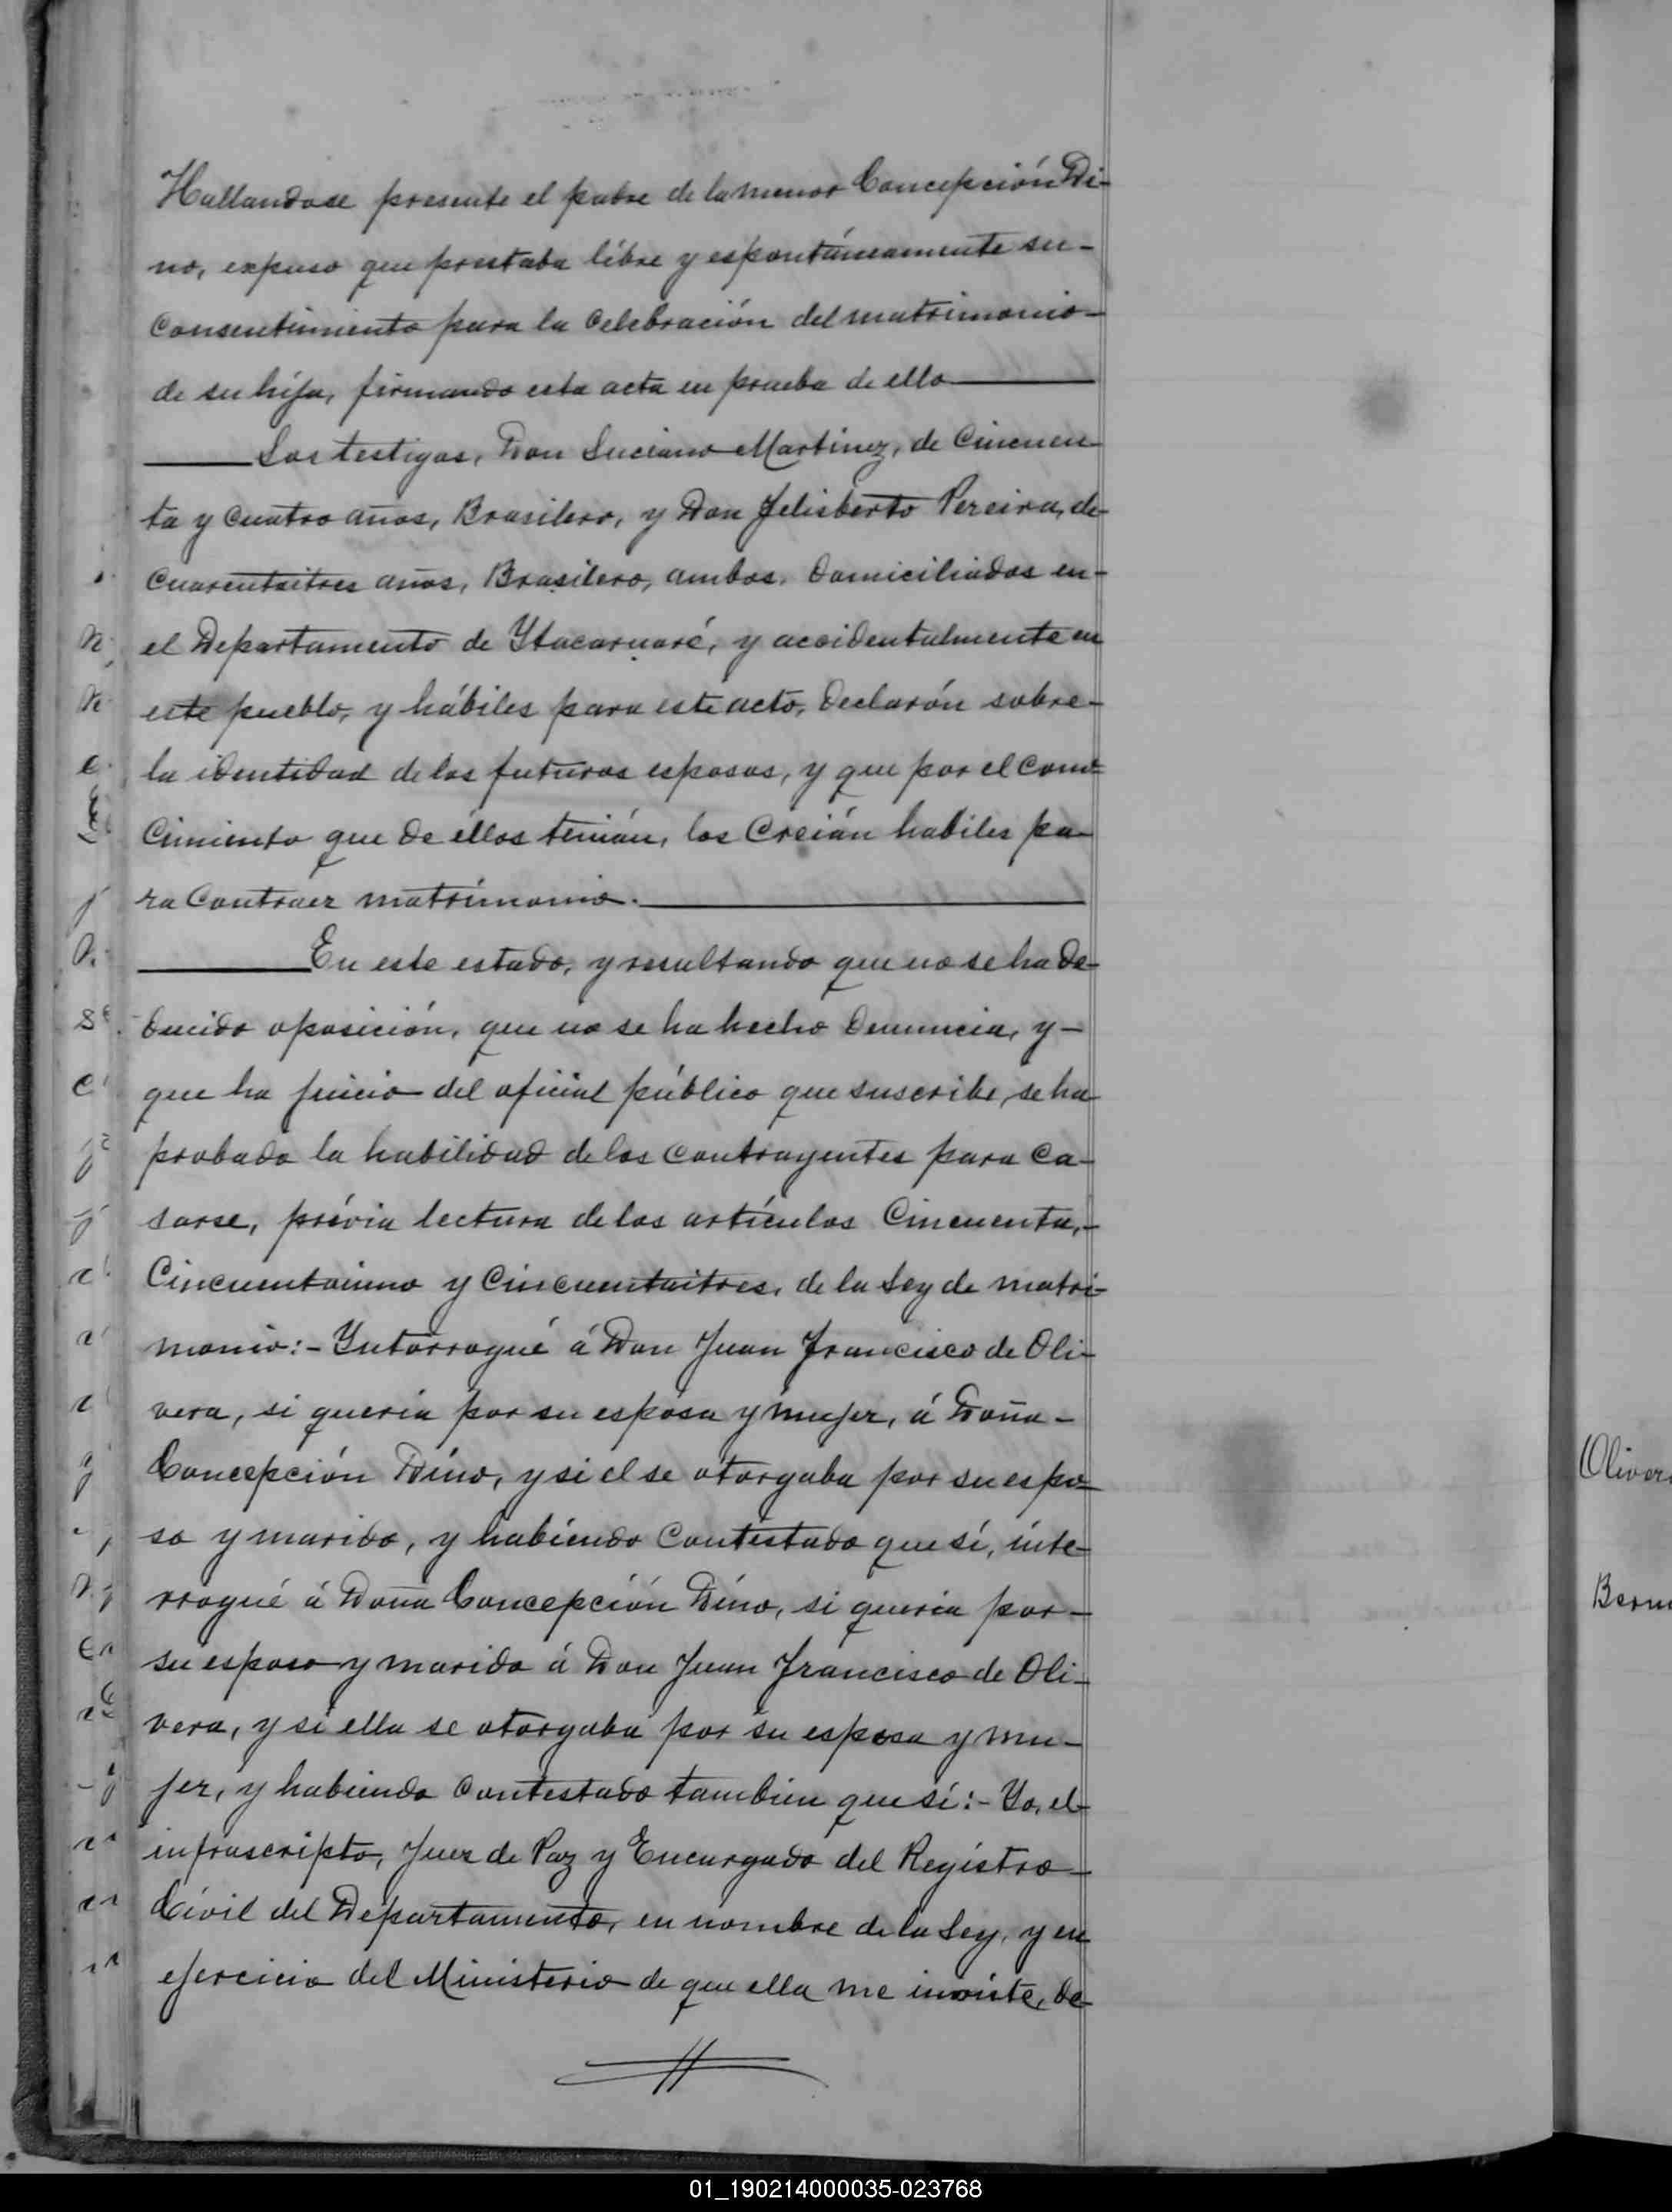 Hallandose presente el padre de la menor Concepción Di-
no, expuso que prestaba líbre y espontáneamente su-
Consentimiento para la Celebración del matrimonio-
de su hija, firmando esta acta en prueba de ello
Los testigos, Don Luciano Martinez, de Cincuen
ta y Cuatro años, Brasilero, y Don Felisberto Pereira, de-
Cuarentaitres años, Brasilero, ambos, domiciliados en-
el Departamento de Ytacaruaré, y accidentalmente en
este pueblo, y hábiles para este acto, declarón sobre-
la identidad de los futuros esposos, y que por el Cono-
Cimiento que de éllos tenián, los Creián habiles pa-
ra Contraer matrimonio.
En este estado, y resultando que no se ha de-
ducido oposición, que no se ha hecho denuncia, y-
que ha juicio del oficial público que suscribe, se ha
probado la habilidad de los Contrayentes para Ca-
sarse, prévia lectura de los artículos Cincuenta,-
Cincuentaiuno y Cincuentaitres, de la Ley de matri-
monio:- Yntorrogué á Don Juan Francisco de Oli-
vera, si queria por su esposa y mujer, á Doña-
Concepción Dino, y si el se otorgaba por su espo-
so y marido, y habiendo Contestado que sí, inte-
rrogué á Doña Concepción Dino, si queria por-
su esposo y marido á Don Juan Francisco de Oli-
vera, y si ella se otorgaba por su esposa y mu-
jer, y habiendo Contestado tambien que sí:- Yo, el-
infrascripto, Juez de Paz y Encargado del Registro-
Civil del Departamento, en nombre de la Ley, y en
ejercicio del Ministerio de que ella me inviste, de-
Oliver
Bern
01_190214000035-023768